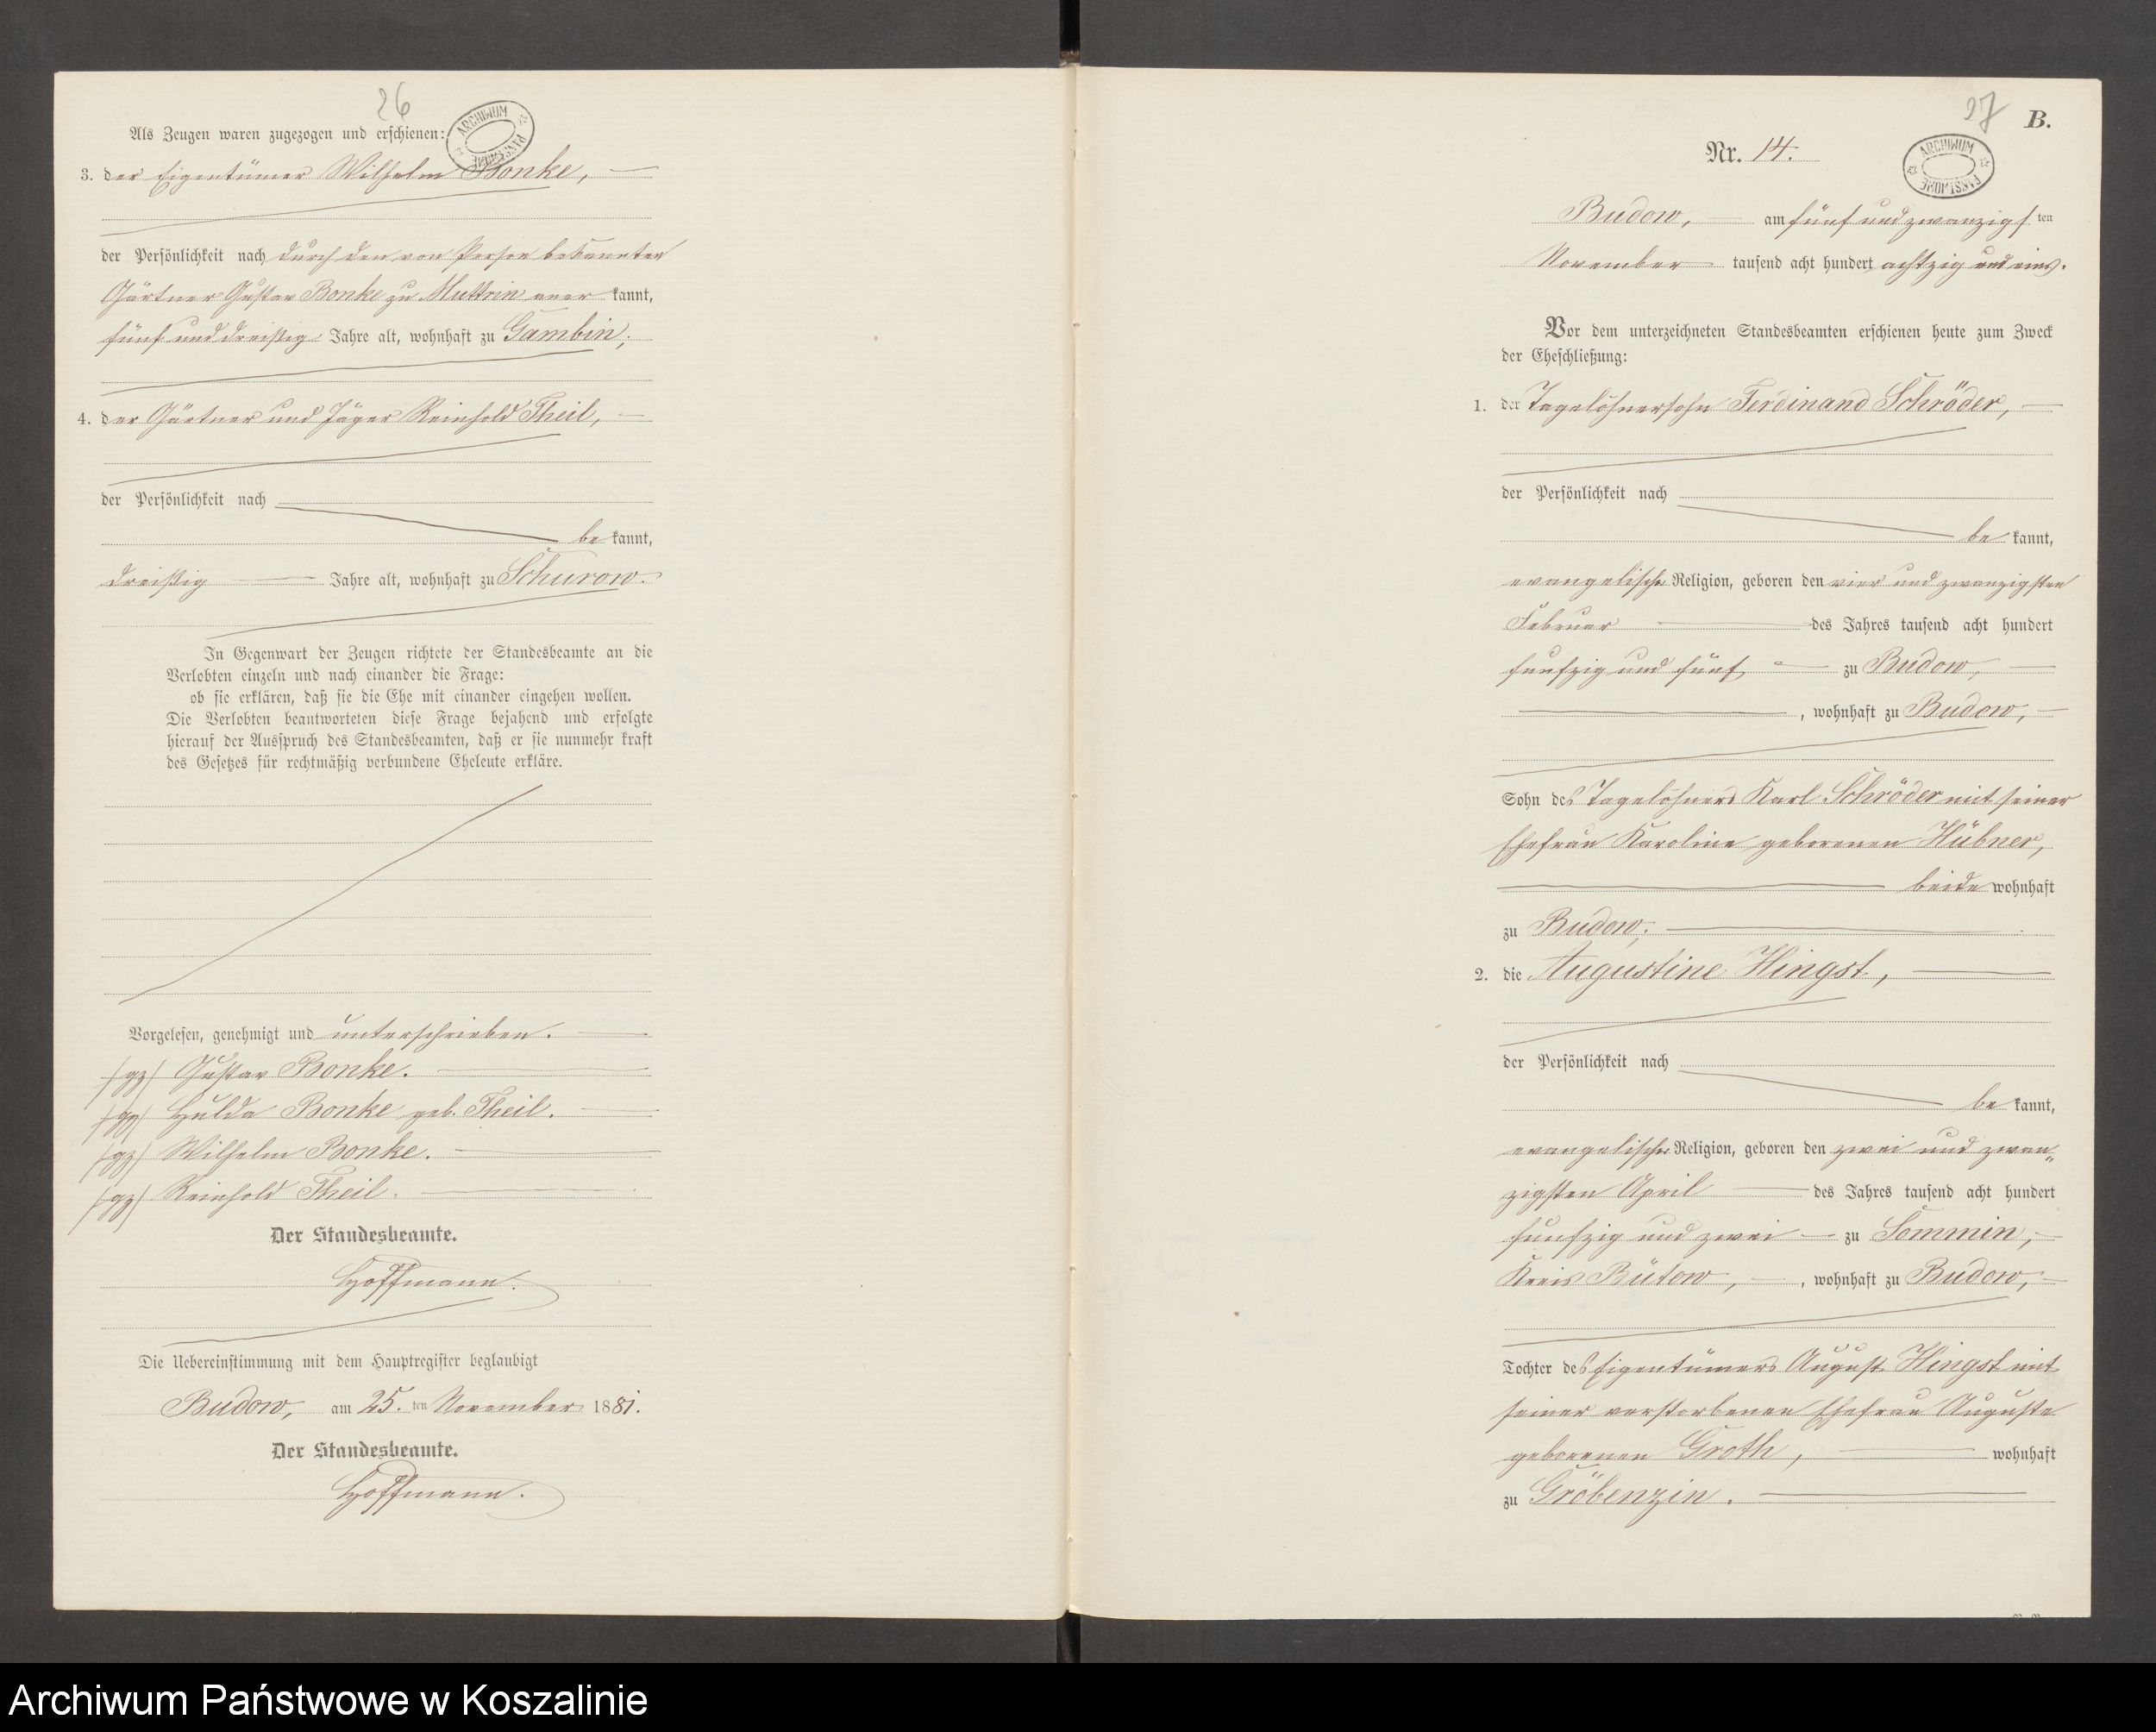 26
Als Zeugen waren zugezogen und erschienen:
ARCHIWUM PAŃSTWOWE
3. der Eigentümer Wilhelm Bonke,
der Persönlichkeit nach durch den von Person bekannten
Gärtner Gustav Bonke zu Muttrin aner kannt,
fünf und dreißig Jahre alt, wohnhaft zu Gambin;
4. der Gärtner und Jäger Reinhold Theil,
der Persönlichkeit nach
be kannt,
dreißig Jahre alt, wohnhaft zu Schurow.
In Gegenwart der Zeugen richtete der Standesbeamte an die
Verlobten einzeln und nach einander die Frage:
ob sie erklären, daß sie die Ehe mit einander eingehen wollen.
Die Verlobten beantworteten diese Frage bejahend und erfolgte
hierauf der Ausspruch des Standesbeamten, daß er sie nunmehr kraft
des Gesetzes für rechtmäßig verbundene Eheleute erkläre.
Vorgelesen, genehmigt und unterschrieben.
/gz/ Gustav Bonke.
/gz/ Hulda Bonke geb. Theil.
/gz/ Wilhelm Bonke.
/gz/ Reinhold Theil.
Der Standesbeamte.
Hoffmann.
Die Uebereinstimmung mit dem Hauptregister beglaubigt
Budow, am 25. ten November 1881.
Der Standesbeamte.
Hoffmann.
27
B.
Nr. 14.
ARCHIWUM PAŃSTWOWE
Budow, am fünf und zwanzigs ten
November tausend acht hundert achtzig und eins.
Vor dem unterzeichneten Standesbeamten erschienen heute zum Zweck
der Eheschließung:
1. der Tagelöhnersohn Ferdinand Schröder,
der Persönlichkeit nach
be kannt,
evangelischer Religion, geboren den vier und zwanzigsten
Februar des Jahres tausend acht hundert
funfzig und fünf zu Budow,
, wohnhaft zu Budow,
Sohn des Tagelöhners Karl Schröder mit seiner
Ehefrau Karoline geborenen Hübner,
beide wohnhaft
zu Budow;
2. die Augustine Hingst,
der Persönlichkeit nach
be kannt,
evangelischer Religion, geboren den zwei und zwan„
zigsten April des Jahres tausend acht hundert
funfzig und zwei zu Sommin,
Kreis Bütow, , wohnhaft zu Budow,
Tochter des Eigentümers August Hingst mit
seiner verstorbenen Ehefrau Auguste
geborenen Groth, wohnhaft
zu Gröbenzin.
Archiwum Państwowe w Koszalinie